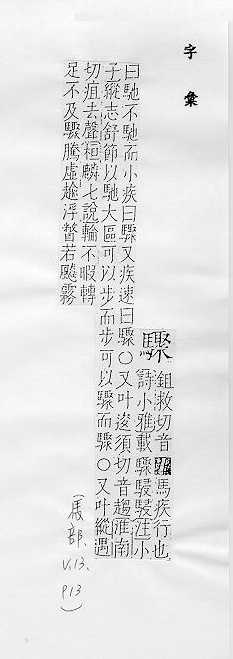 字彙
驟
鉏救切音馬疾行也
詩小雅載驟駸駸注小
曰馳不馳而小疾曰驟又疾速曰驟○又叶逡須切音趨淮南
子縱志舒節以馳大區可以步而步可以驟而驟○又叶縱遇
切疽去聲桓麟七說輪不暇轉
足不及驟騰虛趍浮瞥若飈霧
(馬部、
V.13、
P13)